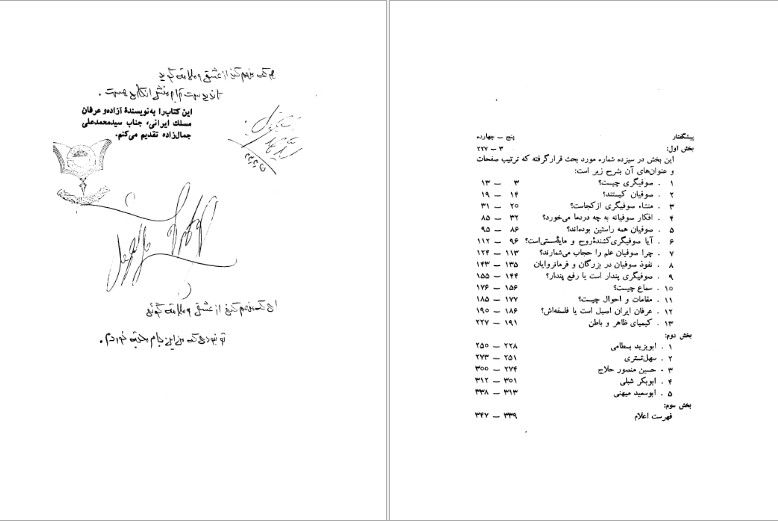 این کتاب را به‌نویسندهٔ آزاده و عرفان
مسلك ایرانی، جناب سیدمحمدعلی
جمال‌زاده تقدیم می‌کنم.
پیشگفتار پنج – چهارده
بخش اول: ۳ – ۲۲۷
این بخش در سیزده شماره مورد بحث قرار گرفته که ترتیب صفحات
و عنوان‌های آن بشرح زیر است:
۱ . صوفیگری چیست؟ ۳ – ۱۳
۲ . صوفیان کیستند؟ ۱۴ – ۱۹
۳ . منشاء صوفیگری از کجاست؟ ۲۰ – ۳۱
۴ . افکار صوفیانه به چه دردها می‌خورد؟ ۳۲ – ۸۵
۵ . صوفیان همه راستین بوده‌اند؟ ۸۶ – ۹۵
۶ . آیا صوفیگری کشندهٔ روح و مایهٔ سستی است؟ ۹۶ – ۱۱۲
۷ . چرا صوفیان علم را حجاب می‌شمارند؟ ۱۱۳ – ۱۲۴
۸ . نفوذ صوفیان در بزرگان و فرمانروایان ۱۳۵ – ۱۴۳
۹ . صوفیگری پندار است یا رفع پندار؟ ۱۴۴ – ۱۵۵
۱۰ . سماع چیست؟ ۱۵۶ – ۱۷۶
۱۱ . مقامات و احوال چیست؟ ۱۷۷ – ۱۸۵
۱۲ . عرفان ایران اصیل است یا فلسفه‌اش؟ ۱۸۶ – ۱۹۰
۱۳ . کیمیای ظاهر و باطن ۱۹۱ – ۲۲۷
بخش دوم:
۱ . ابویزید بسطامی ۲۲۸ – ۲۵۰
۲ . سهل تستری ۲۵۱ – ۲۷۳
۳ . حسین منصور حلاج ۲۷۴ – ۳۰۰
۴ . ابوبکر شبلی ۳۰۱ – ۳۱۲
۵ . ابوسعید میهنی ۳۱۳ – ۳۳۸
بخش سوم:
فهرست اعلام ۳۳۹ – ۳۴۷